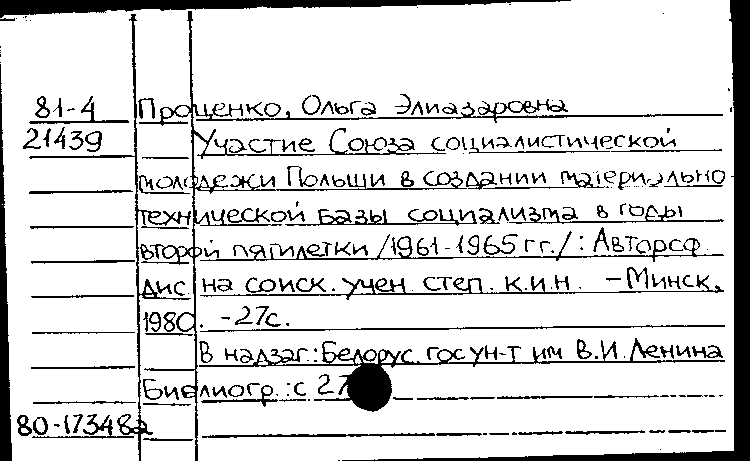 81-4 Проценко, Ольга Элиазаровна
21439 Участие Союза социалистической
молодежи Польши в создании материально-
технической базы социализма в годы
второй пятилетки /1961-1965 гг./: Автореф.
дис на соиск. учен степ. к.и.н. – Минск,
1980. - 27с.
В надзаг.: Белорус. гос ун-т им В.И. Ленина
Библиогр.: с 27
80-17348а